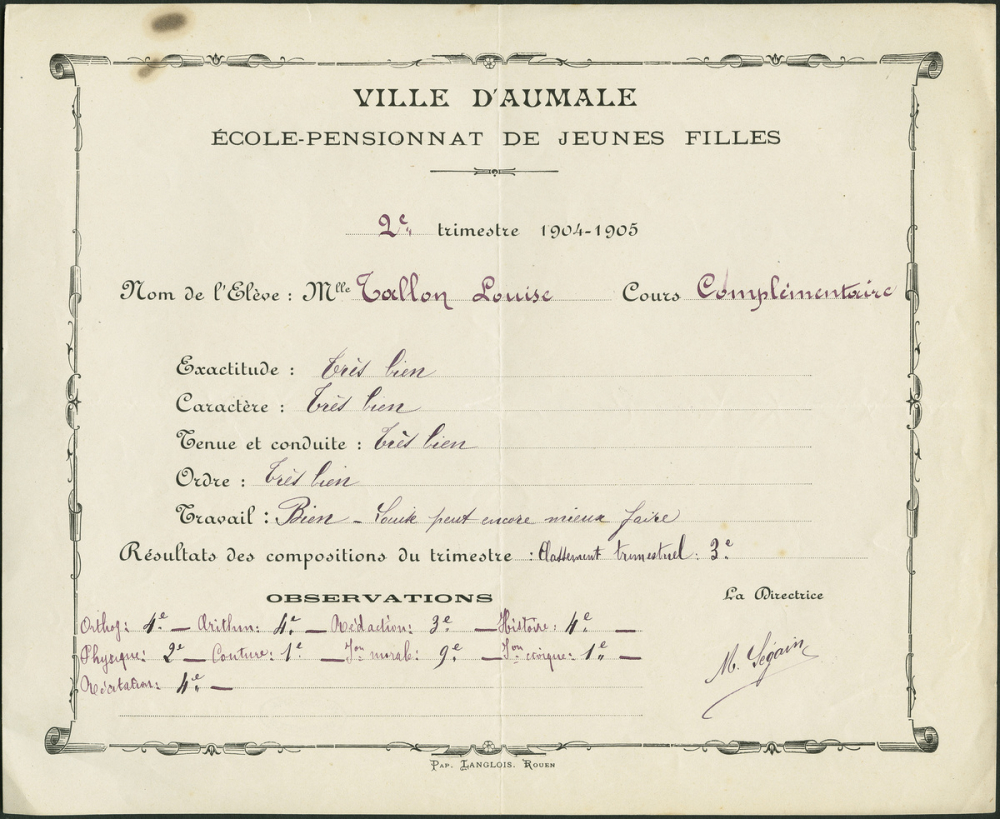 VILLE D'AUMALE
ÉCOLE-PENSIONNAT DE JEUNES FILLES
2e trimestre 1904-1905
Nom de l'Elève : Mlle Tallon Louise Cours Complémentaire
Exactitude : très bien
Caractère : Très bien
Tenue et conduite : Très bien
Ordre : Très bien
Travail : Bien – Louise peut encore mieux faire
Résultats des compositions du trimestre : Classement trimestriel : 3e
OBSERVATIONS La Directrice
Orthog: 4e — Arithm: 4e — Rédaction: 3e — Histoire: 4e —
Physique: 2e — Couture: 1e — Ion morale: 9e — Ion civique: 1e —
Récitation: 4e —
M. Segain
PAP. LANGLOIS. ROUEN